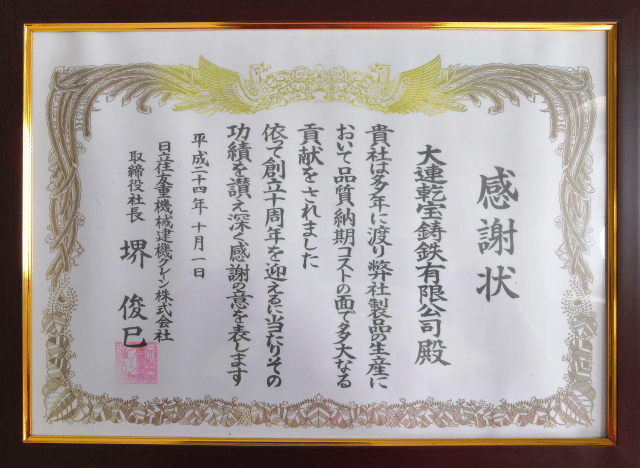 感謝状
大連乾宝鋳鉄有限公司殿
貴社は多年に渡り弊社製品の生産に
おいて品質、納期コストの面で多大なる
貢献をされました
依て創立十周年を迎えるに当たりその
功績を讃え深く感謝の意を表します
平成二十四年十月一日
日立住友重機械建機クレーン株式会社
取締役社長 堺 俊巳